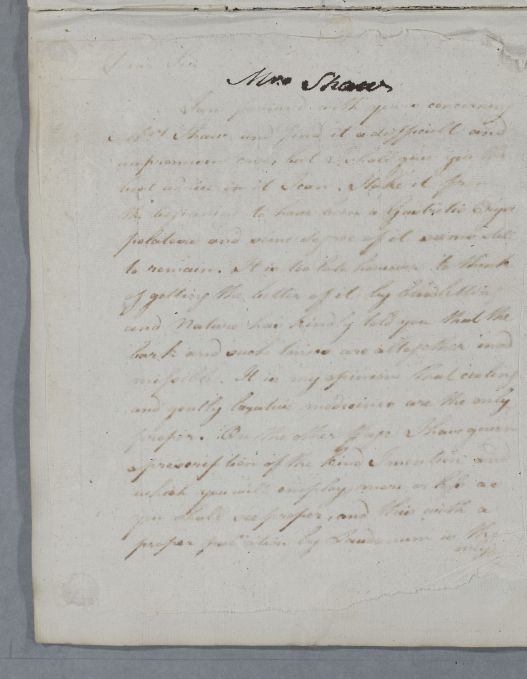 Dear Sir
Mrs Shaw
I am favoured with yours concerning
Mrs Shaw and find it a difficult and
unpromising case, but I shall give you the
best advice in it I can. I take it from
the beginning to have been a Gastritis Erysi
pelatosa and some degree of it seems still
to remain. It is too late however to think
of getting the better of it by bloodletting
and Nature has kindly told you that the
bark and such tonics are altogether inad
missible. It is my opinion that cooling
and gently laxative medicines are the only
proper. On the other page I have given
a prescription of the kind I mention and
which you will employ more or less as
you shall see proper, and this with a
proper by Laudanum is the
only